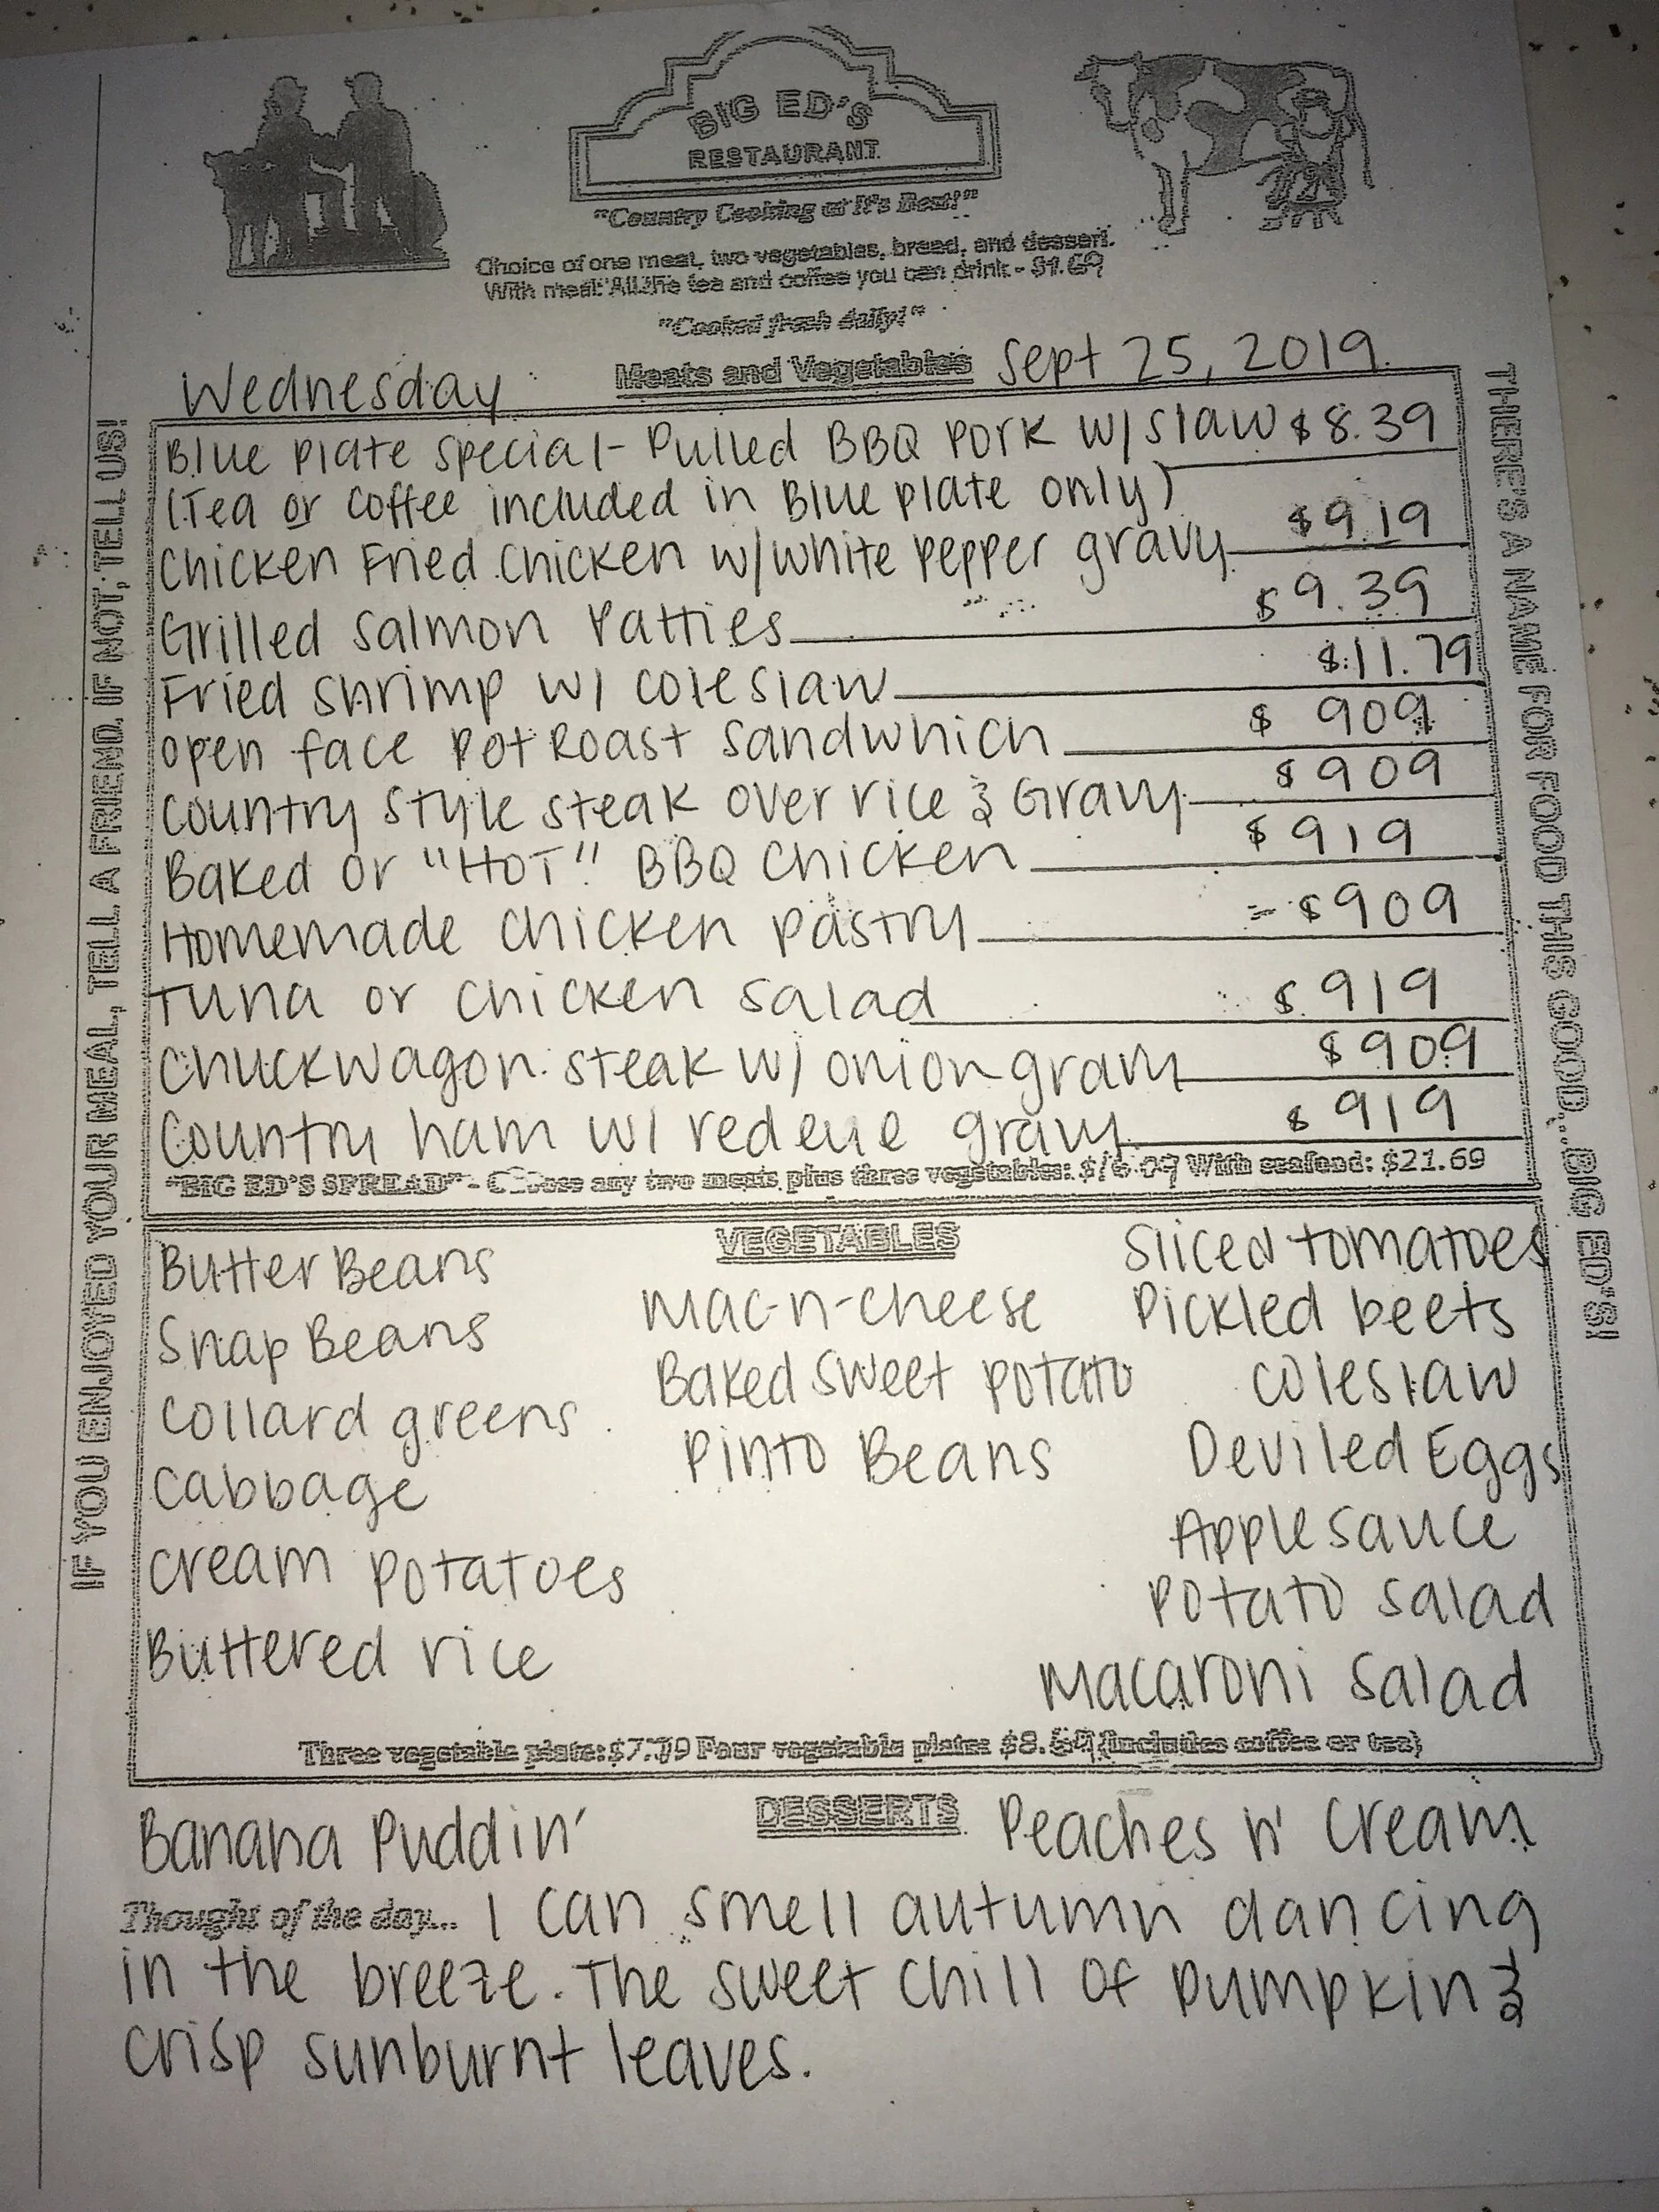 BIG ED'S
RESTAURANT
"Country Cooking at It's Best!"
Choice of one meat, two vegetables, bread, and dessert.
With meal: All the tea and coffee you can drink - $1.69
"Cooked fresh daily!"
Wednesday Meats and Vegetables Sept 25, 2019
Blue Plate Special - Pulled BBQ Pork w/ slaw $8.39
(Tea or Coffee included in Blue Plate only)
Chicken Fried Chicken w/ white pepper gravy $9.19
Grilled Salmon Patties $9.39
Fried Shrimp w/ coleslaw $11.79
Open face Pot Roast Sandwhich $909
Country Style Steak over rice & Gravy $909
Baked or "HOT" BBQ Chicken $919
Homemade Chicken pastry $909
Tuna or Chicken Salad $919
Chuckwagon steak w/ onion gravy $909
Country ham w/ red eye gravy $919
"BIG ED'S SPREAD" - Choose any two meats plus three vegetables: With seafood: $21.69
VEGETABLES
Butter Beans
Snap Beans
Collard greens
Cabbage
Cream Potatoes
Buttered rice
Mac-n-cheese
Baked sweet potato
Pinto Beans
Sliced tomatoes
Pickled beets
Coleslaw
Deviled Eggs
Applesauce
Potato salad
Macaroni Salad
Three vegetable plate: Four vegetable plate: (includes coffee or tea)
DESSERTS
Banana Puddin' Peaches n' Cream
Thought of the day... I can smell autumn dancing
in the breeze. The sweet chill of pumpkin &
crisp sunburnt leaves.
IF YOU ENJOYED YOUR MEAL, TELL A FRIEND. IF NOT, TELL US!
THERE'S A NAME FOR FOOD THIS GOOD... BIG ED'S!